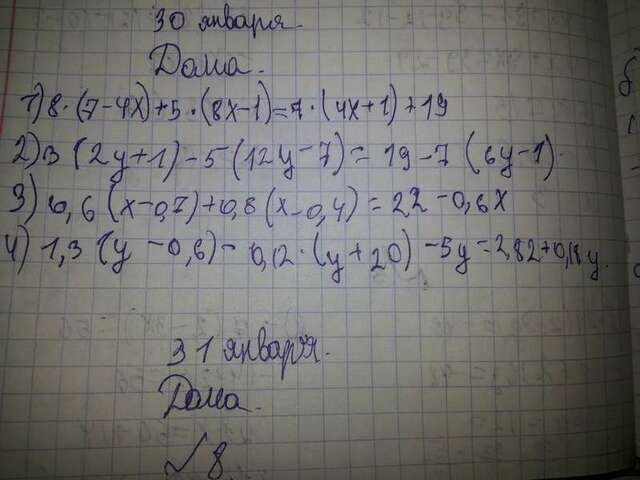 30 января.
Дома.
1) 8·(7-4x)+5·(8x-1)=7·(4x+1)+19
2) 3(2y+1)-5(12y-7)=19-7(6y-1).
3) 0,6(x-0,7)+0,8(x-0,4)=22-0,6x
4) 1,3(y-0,6)-0,12·(y+20)-5y=2,82+0,18y.
31 января.
Дома.
√8.